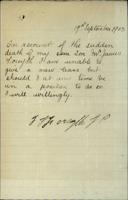 19th September 1903
On account of the sudden
death of my son Mr James
Forsyth I am unable to
give a new lease but
should I at any time be
in a position to do so
I will willingly.